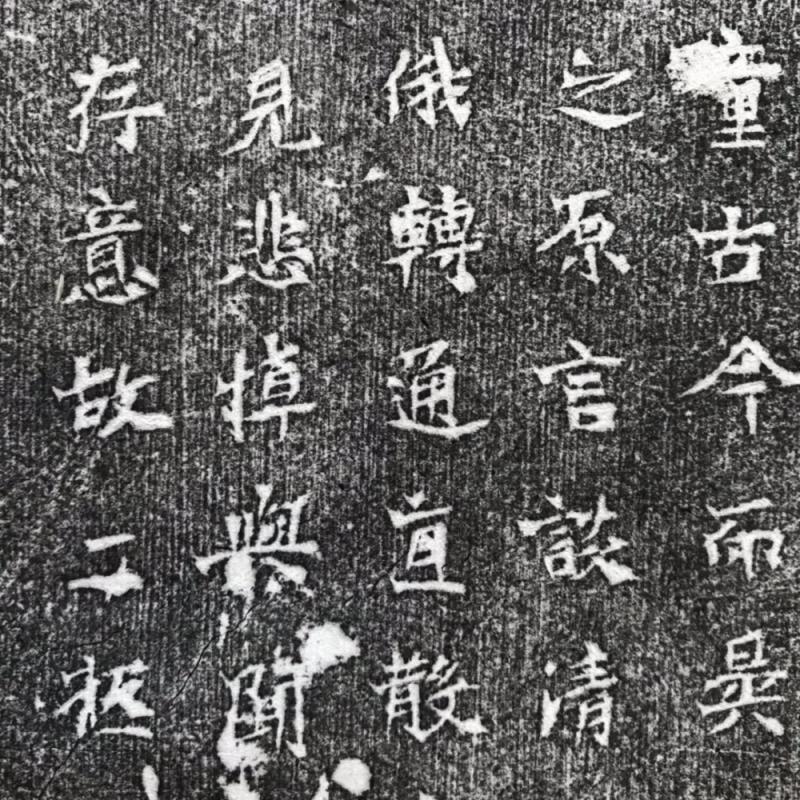 童古今而
之原言談清
俄轉通直散
見悲悼與
存意故